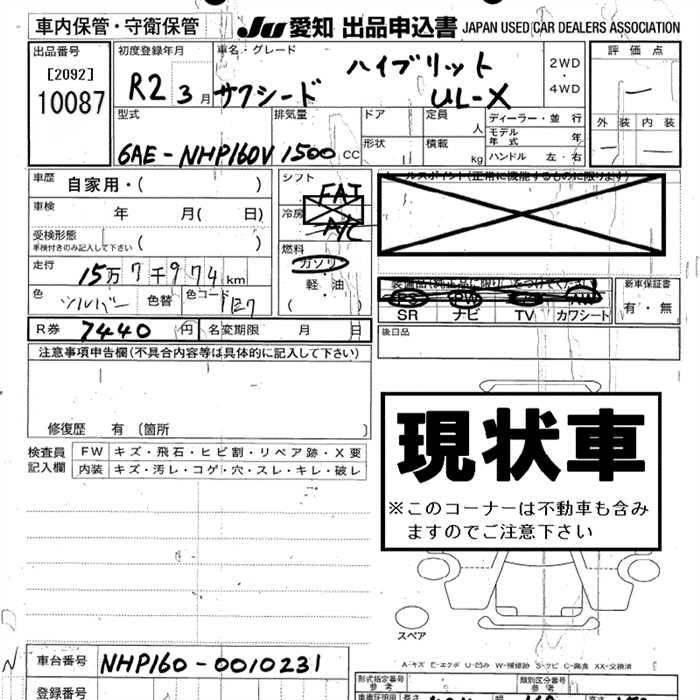 車内保管・守衛保管
JU 愛知 出品申込書 JAPAN USED CAR DEALERS ASSOCIATION
出品番号
[2092]
10087
初度登録年月
R2 3月
車名・グレード
ハイブリット
サクシード UL-X
2WD
・
4WD
評価点
―
外装 内装
― ―
型式
6AE-NHP160V
排気量
1500 CC
ドア
形状
定員 人
積載 kg
ディーラー・並行
モデル年式 年
ハンドル 左・右
車歴 自家用・( )
車検 年 月( 日)
受検形態
車検付きのみ記入して下さい ( )
シフト
FAT
冷房
A/C
燃料
ガソリン
・
軽・油
( )
セールスポイント(正常に機能するものに限ります)
走行 15万7千974km
色 シルバー 色替 色コード 1E7
装備品(純正品に限り)をつけてください
PS PW AW
SR ナビ TV カワシート
新車保証書
有・無
R券 7440 円 名変期限 月 日
後日品
注意事項申告欄(不具合内容等は具体的に記入して下さい)
修復歴 有 (箇所 )
現状車
※このコーナーは不動車も含み
ますのでご注意下さい
検査員
記入欄
FW キズ・飛石・ヒビ割・リペア跡・X要
内装 キズ・汚レ・コゲ・穴・スレ・キレ・破レ
スペア
A-キズ E-エクボ U-凹み W-補修跡 S-サビ C-腐食 XX-交換済
車台番号 NHP160-0010231
登録番号
形式指定番号
参考
類別区分番号
参考